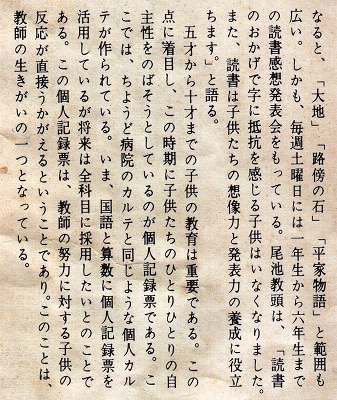 なると、「大地」「路傍の石」「平家物語」と範囲も
広い。しかも、毎週土曜日には一年生から六年生まで
の読書感想発表会をもっている。尾池教頭は、「読書
のおかげで字に抵抗を感じる子供はいなくなりました。
また、読書は子供たちの想像力と発表力の養成に役立
ちます。」と語る。
五才から十才までの子供の教育は重要である。この
点に着目し、この時期に子供たちのひとりひとりの自
主性をのばそうとしているのが個人記録票である。こ
こでは、ちょうど病院のカルテと同じような個人カル
テが作られている。いま、国語と算数に個人記録票を
活用しているが将来は全科目に採用したいとのことで
ある。この個人記録票は、教師の努力に対する子供の
反応が直接うかがえるということであり。このことは、
教師の生きがいの一つとなっている。